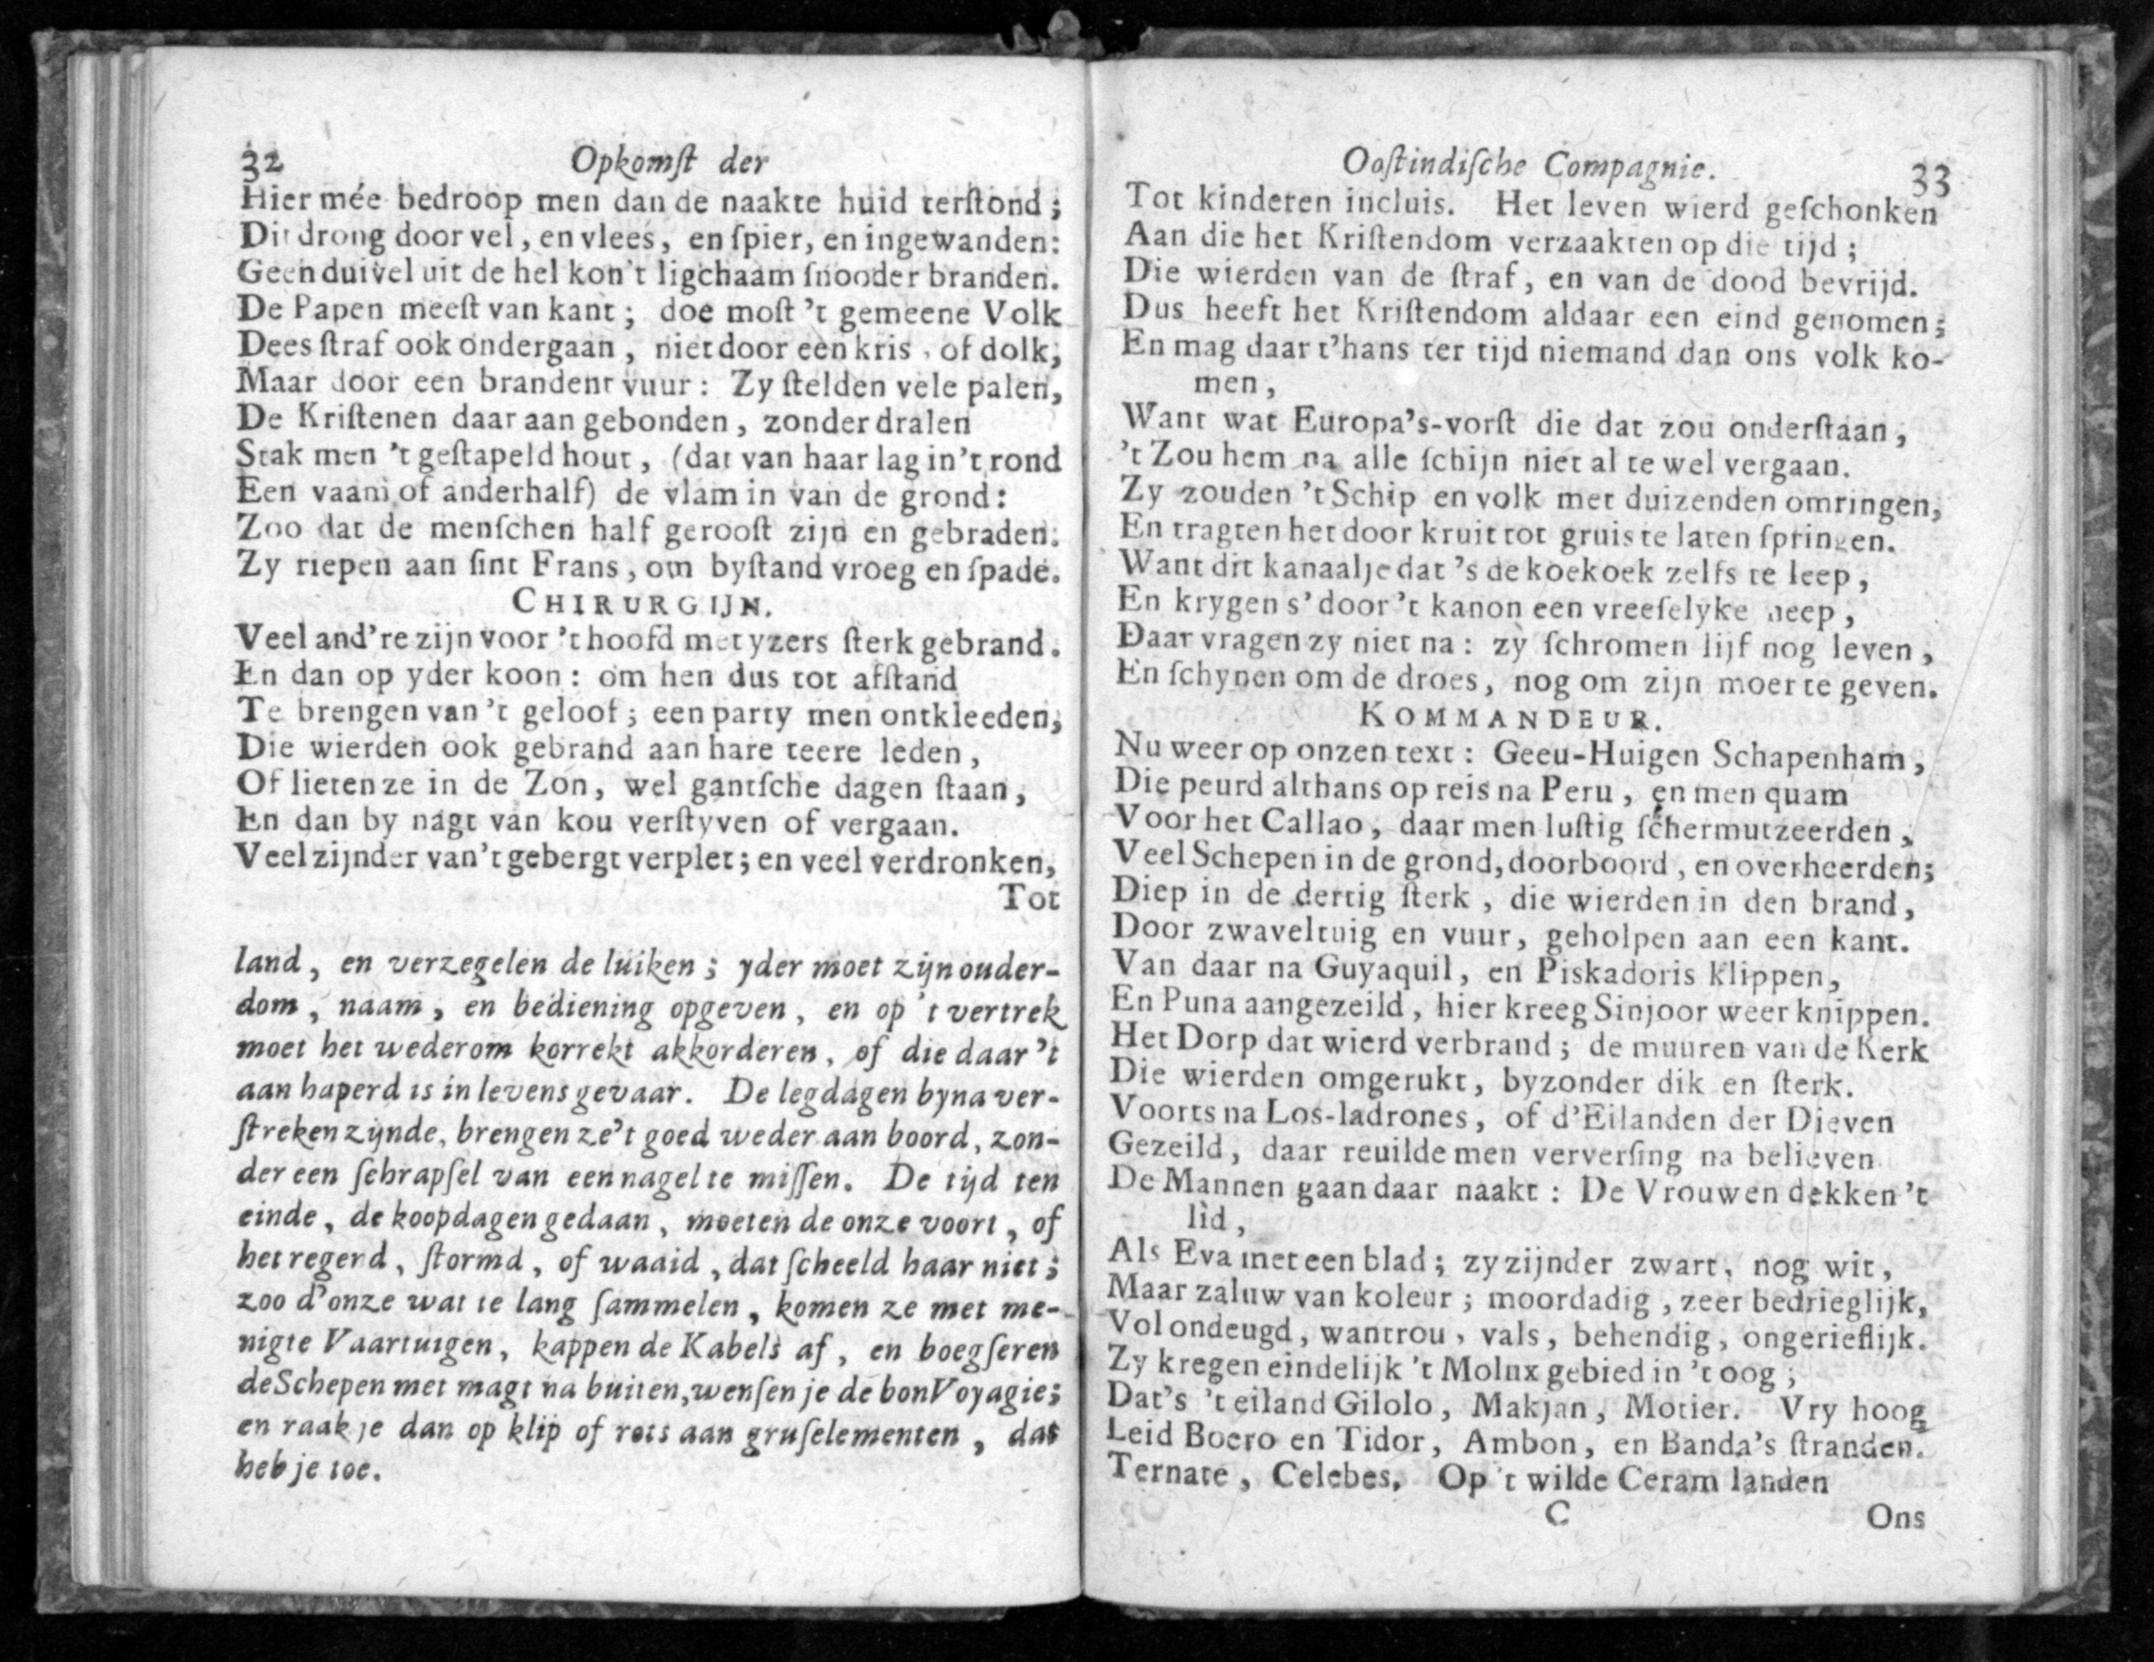 32 Opkomſt der
Hier mée bedroop men dan de naakte huid terſtond;
Dit drong door vel, en vlees, en ſpier, en ingewanden:
Geen duivel uit de hel kon't ligchaam ſnooder branden.
De Papen meeſt van kant; doe moſt 't gemeene Volk
Dees ſtraf ook ondergaan, niet door een kris, of dolk,
Maar door een brandent vuur: Zy ſtelden vele palen,
De Kriſtenen daar aan gebonden, zonder dralen
Stak men 't geſtapeld hout, (dat van haar lag in't rond
Een vaam of anderhalf) de vlam in van de grond:
Zoo dat de menſchen half gerooſt zijn en gebraden:
Zy riepen aan ſint Frans, om byſtand vroeg en ſpade.
CHIRURGIJN.
Veel and're zijn voor 't hoofd met yzers ſterk gebrand.
En dan op yder koon: om hen dus tot afſtand
Te brengen van 't geloof; een party men ontkleeden,
Die wierden ook gebrand aan hare teere leden,
Of lieten ze in de Zon, wel gantſche dagen ſtaan,
En dan by nagt van kou verſtyven of vergaan.
Veel zijnder van't gebergt verplet; en veel verdronken,
Tot
land, en verzegelen de luiken; yder moet zijn ouder-
dom, naam, en bediening opgeven, en op 't vertrek
moet het wederom korrekt akkorderen, of die daar 't
aan haperd is in levens gevaar. De legdagen byna ver-
ſtreken zijnde, brengen ze't goed weder aan boord, zon-
der een ſchrapſel van een nagel te miſſen. De tijd ten
einde, de koopdagen gedaan, moeten de onze voort, of
het regerd, ſtormd, of waaid, dat ſcheeld haar niet;
zoo d'onze wat te lang ſammelen, komen ze met me-
nigte Vaartuigen, kappen de Kabels af, en boegſeren
de Schepen met magt na buiten, wenſen je de bon Voyagie;
en raak je dan op klip of rots aan gruſelementen, dat
heb je toe.
Ooſtindiſche Compagnie. 33
Tot kinderen incluis. Het leven wierd geſchonken
Aan die het Kriſtendom verzaakten op die tijd;
Die wierden van de ſtraf, en van de dood bevrijd.
Dus heeft het Kriſtendom aldaar een eind genomen;
En mag daar t'hans ter tijd niemand dan ons volk ko-
men,
Want wat Europa's-vorſt die dat zou onderſtaan,
't Zou hem na alle ſchijn niet al te wel vergaan.
Zy zouden 't Schip en volk met duizenden omringen,
En tragten het door kruit tot gruis te laten ſpringen.
Want dit kanaalje dat 's de koekoek zelfs te leep,
En krygen s' door 't kanon een vreeſelyke neep,
Daar vragen zy niet na: zy ſchromen lijf nog leven,
En ſchynen om de droes, nog om zijn moer te geven.
KOMMANDEUR.
Nu weer op onzen text: Geeu-Huigen Schapenham,
Die peurd althans op reis na Peru, en men quam
Voor het Callao, daar men luſtig ſchermutzeerden,
Veel Schepen in de grond, doorboord, en overheerden;
Diep in de dertig ſterk, die wierden in den brand,
Door zwaveltuig en vuur, geholpen aan een kant.
Van daar na Guyaquil, en Piskadoris klippen,
En Puna aangezeild, hier kreeg Sinjoor weer knippen.
Het Dorp dat wierd verbrand; de muuren van de Kerk
Die wierden omgerukt, byzonder dik en ſterk.
Voorts na Los-ladrones, of d'Eilanden der Dieven
Gezeild, daar reuilde men ververſing na believen
De Mannen gaan daar naakt: De Vrouwen dekken 't
lid,
Als Eva met een blad; zy zijnder zwart, nog wit,
Maar zaluw van koleur; moordadig, zeer bedrieglijk,
Vol ondeugd, wantrou, vals, behendig, ongerieflijk.
Zy kregen eindelijk 't Molux gebied in 't oog;
Dat's 't eiland Gilolo, Makjan, Motier. Vry hoog
Leid Boero en Tidor, Ambon, en Banda's ſtranden.
Ternate, Celebes, Op 't wilde Ceram landen
C Ons